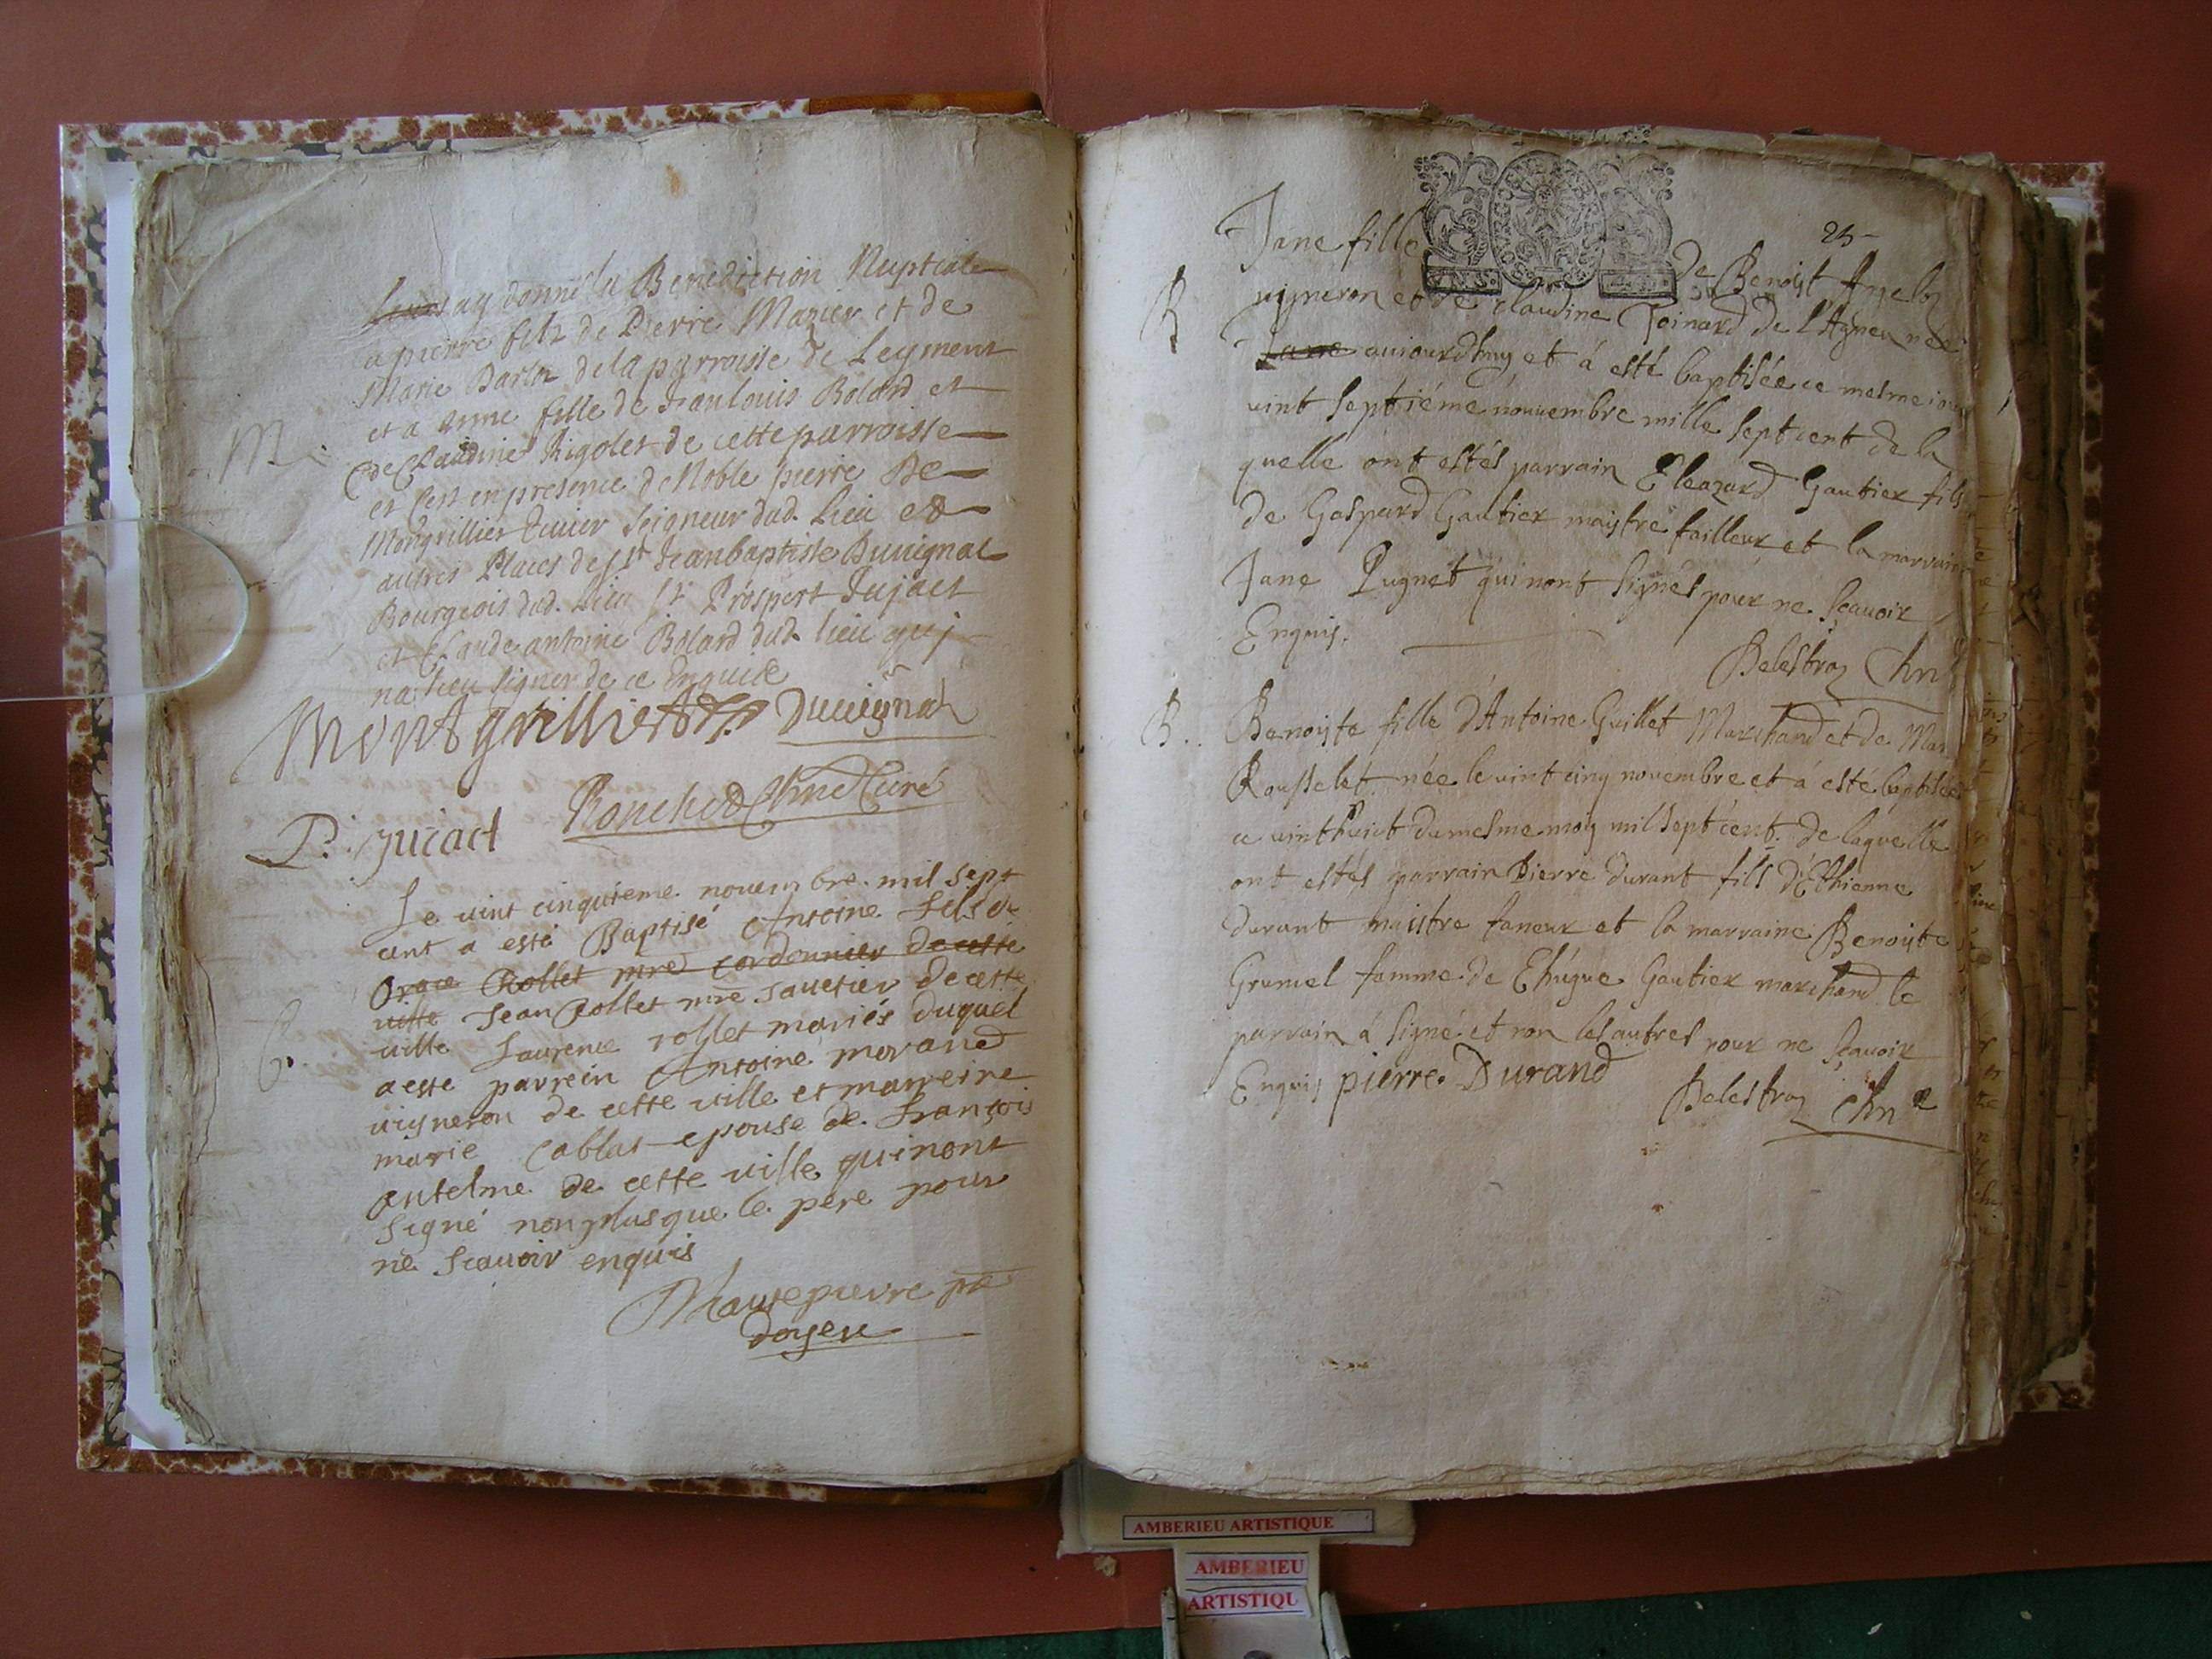 ay donné la Benediction Nuptiale
a pierre filz de Pierre Mazier et de
Marie Barlet de la parroisse de Leyment
M et a Anne fille de Jean louis Bolard et
de Claudine Rigolet de cette parroisse
et c'est en presence de Noble pierre De
Montgrillier Seigneur dud. Lieu et
autres Places de Sr Jean baptiste Duvignat
Bourgeois dud. Lieu Sr Prospert Jujact
et Claude antoine Bolard dud. lieu qui
na sceu signer de ce Enquis
Montgrillier Duuignat
P. Juiact Ronchod Chne Curé
Le vint cinquieme nouembre mil sept
cent a esté Baptisé Antoine fils de
Orace Rollet mre cordonnier de cette
ville Jean Rollet mre sauetier de cette
ville Laurence rollet mariés duquel
a este parrein Antoine morand
vigneron de cette ville et marreine
marie Cablat epouse de françois
antelme de cette ville qui nont
signé non plus que le pere pour
ne scauoir enquis
Hautepierre ptre
doyen
25
Jane fille de Benoist
B vigneron et de claudine Joinard de l'Agneu née
Jane auiourdhuy et á esté baptisée ce mesme iour
vint septiéme nouuembre mille sept cent de la
quelle ont estés parrain Eleazard Gautier fils
de Gaspard Gautier maystre tailleur et la marraine
Jane Pugnet qui nont signés pour ne sçauoir
Enquis.
Belestroz Chne
B. Benoiste fille d'Antoine Guillet Marchand et de Mar
Rousselet née le vint cinq novembre et á esté baptisée
ce vint huict du mesme moy mil sept cent. de laquelle
ont estés parrain Pierre Durant fils d'Ethienne
durant maistre taneur et la marraine Benoiste
Grumel famme de Ehugue Gautier marchand le
parrain á signé et non les autres pour ne sçauoir
Enquis pierre Durand
Belestroz chne
AMBERIEU ARTISTIQUE
AMBERIEU
ARTISTIQU